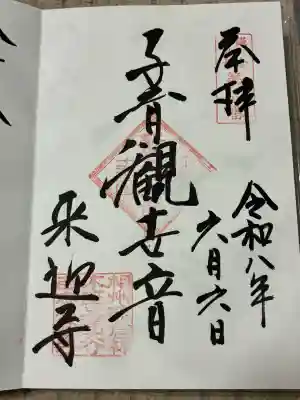 奉拝
令和八年
六月六日
子育觀世音
来迎寺